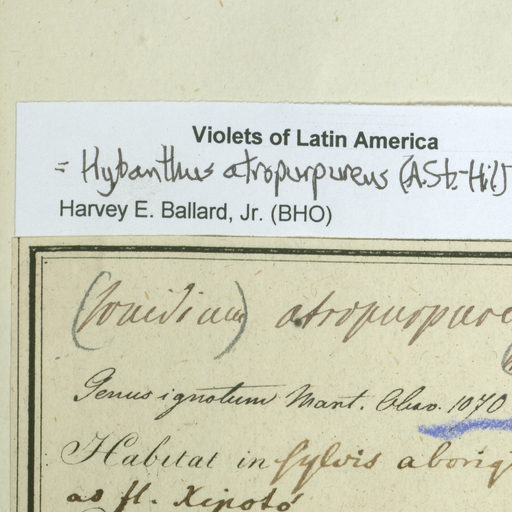 Violets of Latin America
= Hybanthus atropurpureus (A.St.-Hil.)
Harvey E. Ballard, Jr. (BHO)
(Ionidium) atropurpure
Genus ignotum Mart. Obsv. 1070
Habitat in sylvis aborig
ad fl. Xipotó